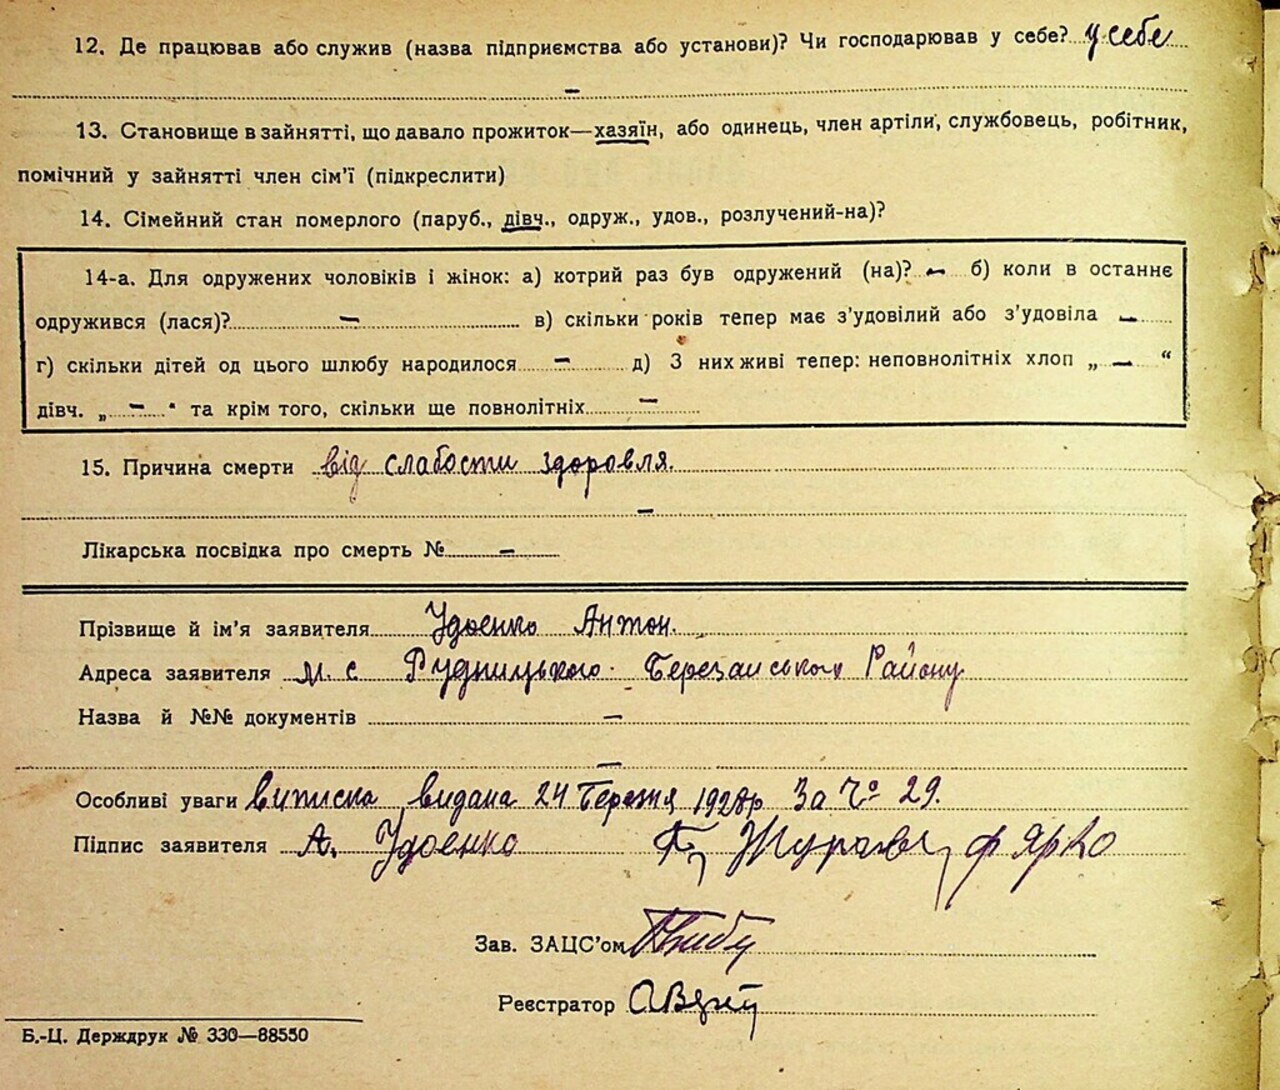 12. Де працював або служив (назва підприємства або установи)? Чи господарював у себе? у себе
—
13. Становище в зайнятті, що давало прожиток—хазяїн, або одинець, член артіли, службовець, робітник,
помічний у зайнятті член сім'ї (підкреслити)
14. Сімейний стан померлого (паруб., дівч., одруж., удов., розлучений-на)?
14-а. Для одружених чоловіків і жінок: а) котрий раз був одружений (на)? — б) коли в останнє
одружився (лася)? — в) скільки років тепер має з'удовілий або з'удовіла —
г) скільки дітей од цього шлюбу народилося — д) З них живі тепер: неповнолітніх хлоп „ — “
дівч. „ — “ та крім того, скільки ще повнолітніх —
15. Причина смерти від слабости здоровля.
—
Лікарська посвідка про смерть № —
Прізвище й ім'я заявителя Удоенко Антон.
Адреса заявителя м. с Рудницького Березанського Району
Назва й №№ документів —
—
Особливі уваги Виписка видана 24 Березня 1928р За Чо 29.
Підпис заявителя А. Удоенко
Зав. ЗАЦС'ом
Реєстратор
Б.-Ц. Держдрук № 330—88550